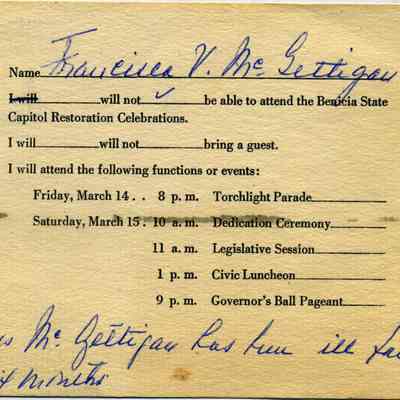 Name Francisca V. McGettigan
I will will not ✓ be able to attend the Benicia State
Capitol Restoration Celebrations.
I will will not bring a guest.
I will attend the following functions or events:
Friday, March 14 . . 8 p. m. Torchlight Parade
Saturday, March 15. 10 a. m. Dedication Ceremony
11 a. m. Legislative Session
1 p. m. Civic Luncheon
9 p. m. Governor's Ball Pageant
McGettigan has been ill
months